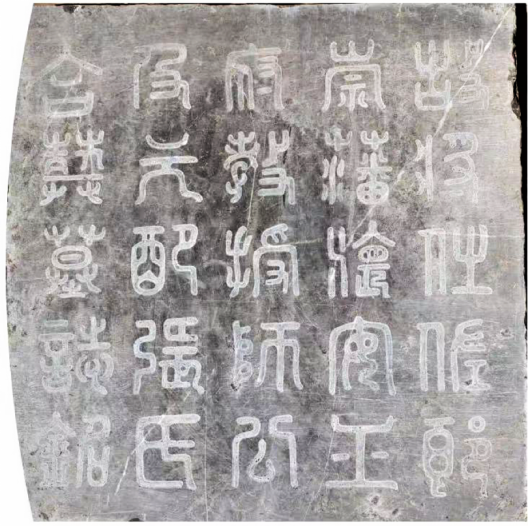 故將仕佐郎
崇藩懷安王
府教授師公
及元配張氏
合葬墓誌銘